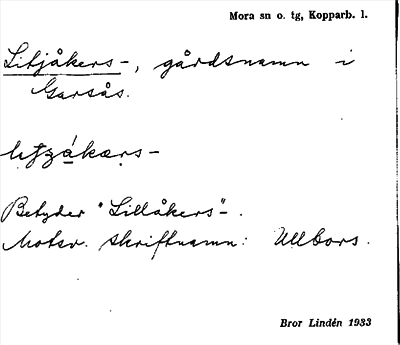 Mora sn o. tg, Kopparb. l.
Litjåkers-, gårdsnamn i
Garsås.
Betyder "Lillåkers"-.
Motsv. skriftnamn: Ullbors.
Bror Lindén 1933